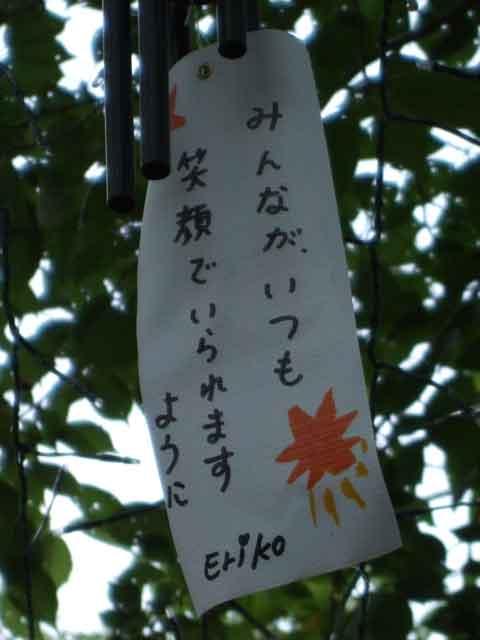 みんなが、いつも
笑顔でいられます
ように
Eriko